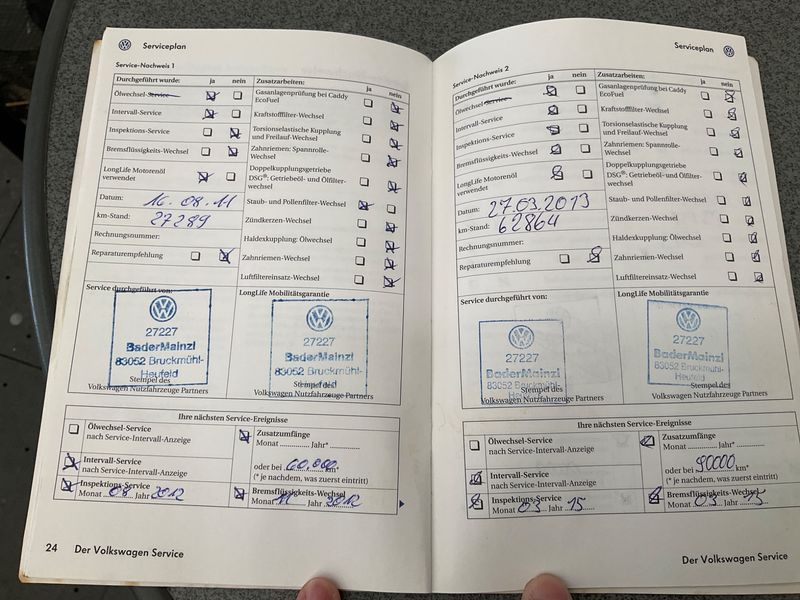 Serviceplan
Service-Nachweis 1
Durchgeführt wurde: ja nein
Ölwechsel-Service
Intervall-Service
Inspektions-Service
Bremsflüssigkeits-Wechsel
LongLife Motorenöl
verwendet
Datum: 16.08.11
km-Stand: 27289
Rechnungsnummer:
Reparaturempfehlung
Zusatzarbeiten: ja nein
Gasanlagenprüfung bei Caddy
EcoFuel
Kraftstofffilter-Wechsel
Torsionselastische Kupplung
und Freilauf-Wechsel
Zahnriemen: Spannrolle-
Wechsel
Doppelkupplungsgetriebe
DSG®: Getriebeöl- und Ölfilter-
wechsel
Staub- und Pollenfilter-Wechsel
Zündkerzen-Wechsel
Haldexkupplung: Ölwechsel
Zahnriemen-Wechsel
Luftfiltereinsatz-Wechsel
Service durchgeführt von:
27227
BaderMainzl
83052 Bruckmühl-
Heufeld
Stempel des
Volkswagen Nutzfahrzeuge Partners
LongLife Mobilitätsgarantie
27227
BaderMainzl
83052 Bruckmühl-
Stempel des
Volkswagen Nutzfahrzeuge Partners
Ihre nächsten Service-Ereignisse
Ölwechsel-Service
nach Service-Intervall-Anzeige
Intervall-Service
nach Service-Intervall-Anzeige
Inspektions-Service
Monat 08 Jahr 2012
Zusatzumfänge
Monat .............. Jahr* ..............
oder bei 60.000 km*
(* je nachdem, was zuerst eintritt)
Bremsflüssigkeits-Wechsel
Monat 11 Jahr 2012
24 Der Volkswagen Service
Serviceplan
Service-Nachweis 2
Durchgeführt wurde: ja nein
Ölwechsel-Service
Intervall-Service
Inspektions-Service
Bremsflüssigkeits-Wechsel
LongLife Motorenöl
verwendet
Datum: 27.03.2013
km-Stand: 62864
Rechnungsnummer:
Reparaturempfehlung
Zusatzarbeiten: ja nein
Gasanlagenprüfung bei Caddy
EcoFuel
Kraftstofffilter-Wechsel
Torsionselastische Kupplung
und Freilauf-Wechsel
Zahnriemen: Spannrolle-
Wechsel
Doppelkupplungsgetriebe
DSG®: Getriebeöl- und Ölfilter-
wechsel
Staub- und Pollenfilter-Wechsel
Zündkerzen-Wechsel
Haldexkupplung: Ölwechsel
Zahnriemen-Wechsel
Luftfiltereinsatz-Wechsel
Service durchgeführt von:
27227
BaderMainzl
83052 Bruckmühl-
Stempel des
Volkswagen Nutzfahrzeuge Partners
LongLife Mobilitätsgarantie
27227
BaderMainzl
83052 Bruckmühl-
Heufeld
Stempel des
Volkswagen Nutzfahrzeuge Partners
Ihre nächsten Service-Ereignisse
Ölwechsel-Service
nach Service-Intervall-Anzeige
Intervall-Service
nach Service-Intervall-Anzeige
Inspektions-Service
Monat 03 Jahr 15
Zusatzumfänge
Monat .............. Jahr* ..............
oder bei 90000 km*
(* je nachdem, was zuerst eintritt)
Bremsflüssigkeits-Wechsel
Monat 03 Jahr 15
Der Volkswagen Service